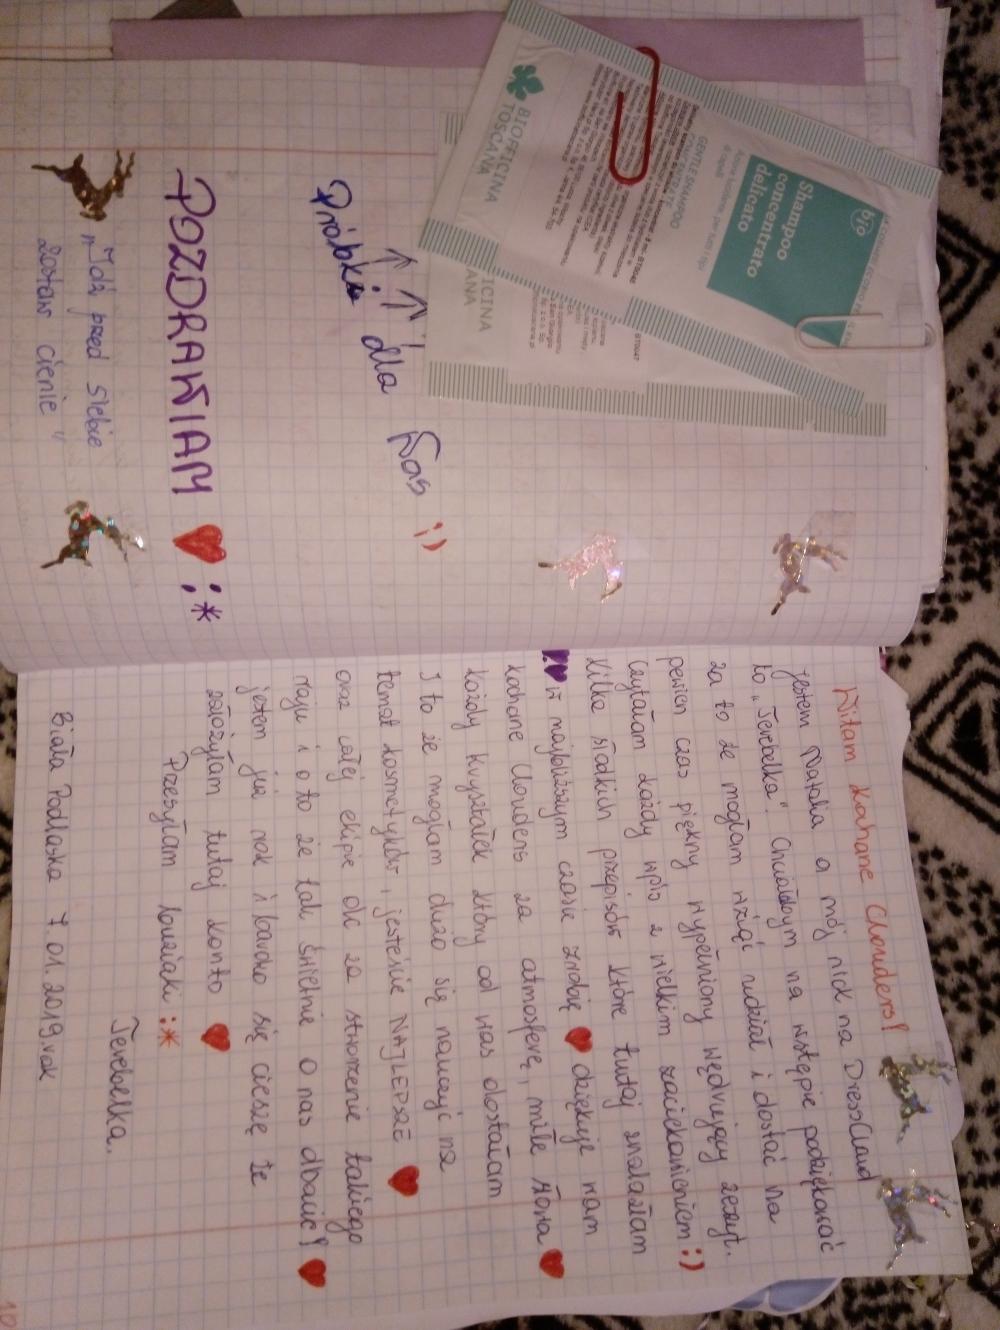 Witam kochane Clouders!
jestem Natalia a mój nick na DressCloud
to „Terebelka". Chciałabym na wstępie podziękować
za to że mogłam wziąć udział i dostać na
pewien czas piękny wypełniony wędrujący zeszyt.
Czytałam każdy wpis z wielkim zaciekawieniem :)
Kilka słodkich przepisów które tutaj znalazłam
w najbliższym czasie zrobię ♥ dziękuje wam
kochane Clouders za atmosferę, miłe słowa ♥
każdy kryształek który od was dostałam
I to że mogłam dużo się nauczyć na
temat kosmetyków, jesteście NAJLEPSZE ♥
oraz całej ekipie dc za stworzenie takiego
raju i o to że tak świetnie o nas dbacie! ♥
jestem już rok i bardzo się cieszę że
założyłam tutaj konto ♥
Przesyłam buziaki :*
Terebelka.
Biała Podlaska 7.01.2019.rok
10
Próbki dla Was ;)
POZDRAWIAM ♥ :*
„Idź przed siebie
zostaw cienie"
BIOFFICINA
TOSCANA
GENTLE SHAMPOO
CONCENTRATE
Shampoo
concentrato
delicato
bio
ICINA
ANA